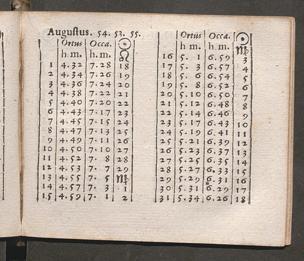 Augustus. 54. 53. 55.
Ortus Occa. ☉
h. m. h. m. ♌
1 4.32 7.28 18
2 4.34 7.26 19
3 4.36 7.24 20
4 4.38 7.22 21
5 4.40 7.20 22
6 4.43 7.17 23
7 4.45 7.15 24
8 4.47 7.13 25
9 4.49 7.11 26
10 4.50 7.10 27
11 4.52 7.8 28
12 4.53 7.7 29
13 4.55 7.5 ♍
14 4.57 7.3 1
15 4.59 7.1 2
Ortus Occa. ☉
h. m. h. m. ♍
16 5.1 6.59 3
17 5.3 6.57 4
18 5.4 6.56 5
19 5.6 6.54 6
20 5.8 6.52 7
21 5.10 6.50 8
22 5.12 6.48 9
23 5.14 6.46 10
24 5.17 6.43 11
25 5.19 6.41 12
26 5.21 6.39 13
27 5.23 6.37 14
28 5.25 6.35 15
29 5.29 6.31 16
30 5.31 6.29 17
31 5.34 6.26 18